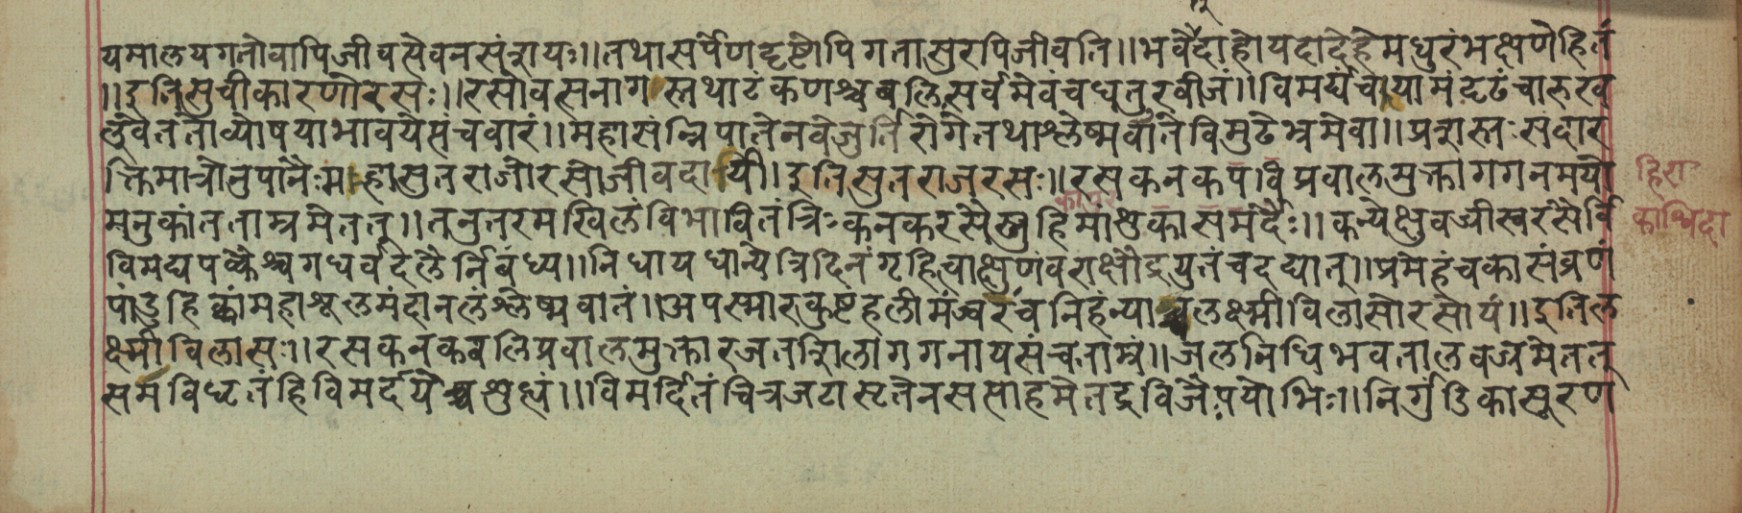 यमालयगतोवापिजीवत्सेवनसंशयः॥तथासर्पेणदृष्टोपिगतासुरपिजीवति॥भवेदाहोयदादेहेमधुरंभक्षणेहितं
॥इतिसुचीकारणोरसः॥रसोवत्सनागस्तथाटंकणश्चबलिसर्वमेवंचधत्तुरबीजं॥विमर्द्येचायामंदृढंचारुखल्
लेवैततोव्योषयाभावयेसंचवारं॥महासंन्निपातेनवेजुर्तिरोगेतथाश्लेष्मवातेविमुढेभ्रमेवा॥प्रशस्तःसदार
क्तिमात्रोनुपानैःमहासुतराजोरसोजीवदायी।इतिसुतराजरसः॥रसकनकपविप्रवालमुक्तागगनमयो
मनुकांतताम्रमेतत्॥तनुतरमखिलंविभावितंत्रिःकनकरसैस्त्रुहिमांशुकासमर्दैः॥कन्येक्षुवज्रीस्वरसैर्वि
विमद्यपक्कैश्चगंधर्वदलैर्निबंध्य॥निधायधान्येत्रिदिनंगृहित्वाक्षुणंवराक्षौद्रयुतंचदद्यात्॥प्रमेहंचकासंव्रणं
पांडुहिक्कांमहाशूलमंदानलंश्लेष्मवातं॥अपस्मारुकुष्टहलीमंज्वरंचनिहंन्याच्चलक्ष्मीविलासोरसोयं॥इतिल
क्ष्मीविलासः॥रसकनकबलिप्रवालमुक्तारजतशिलागगनायसंचताम्रं॥जलनिधिभवतालवज्रमेतत्
समविधृतंहिविमर्दयेच्चशुह्यं॥विमर्दितंचित्रजटास्टतेनससाहमेतद्रुविजैःपयोभिः॥निर्गुंडिकासूरण
हिरा
काश्विदा